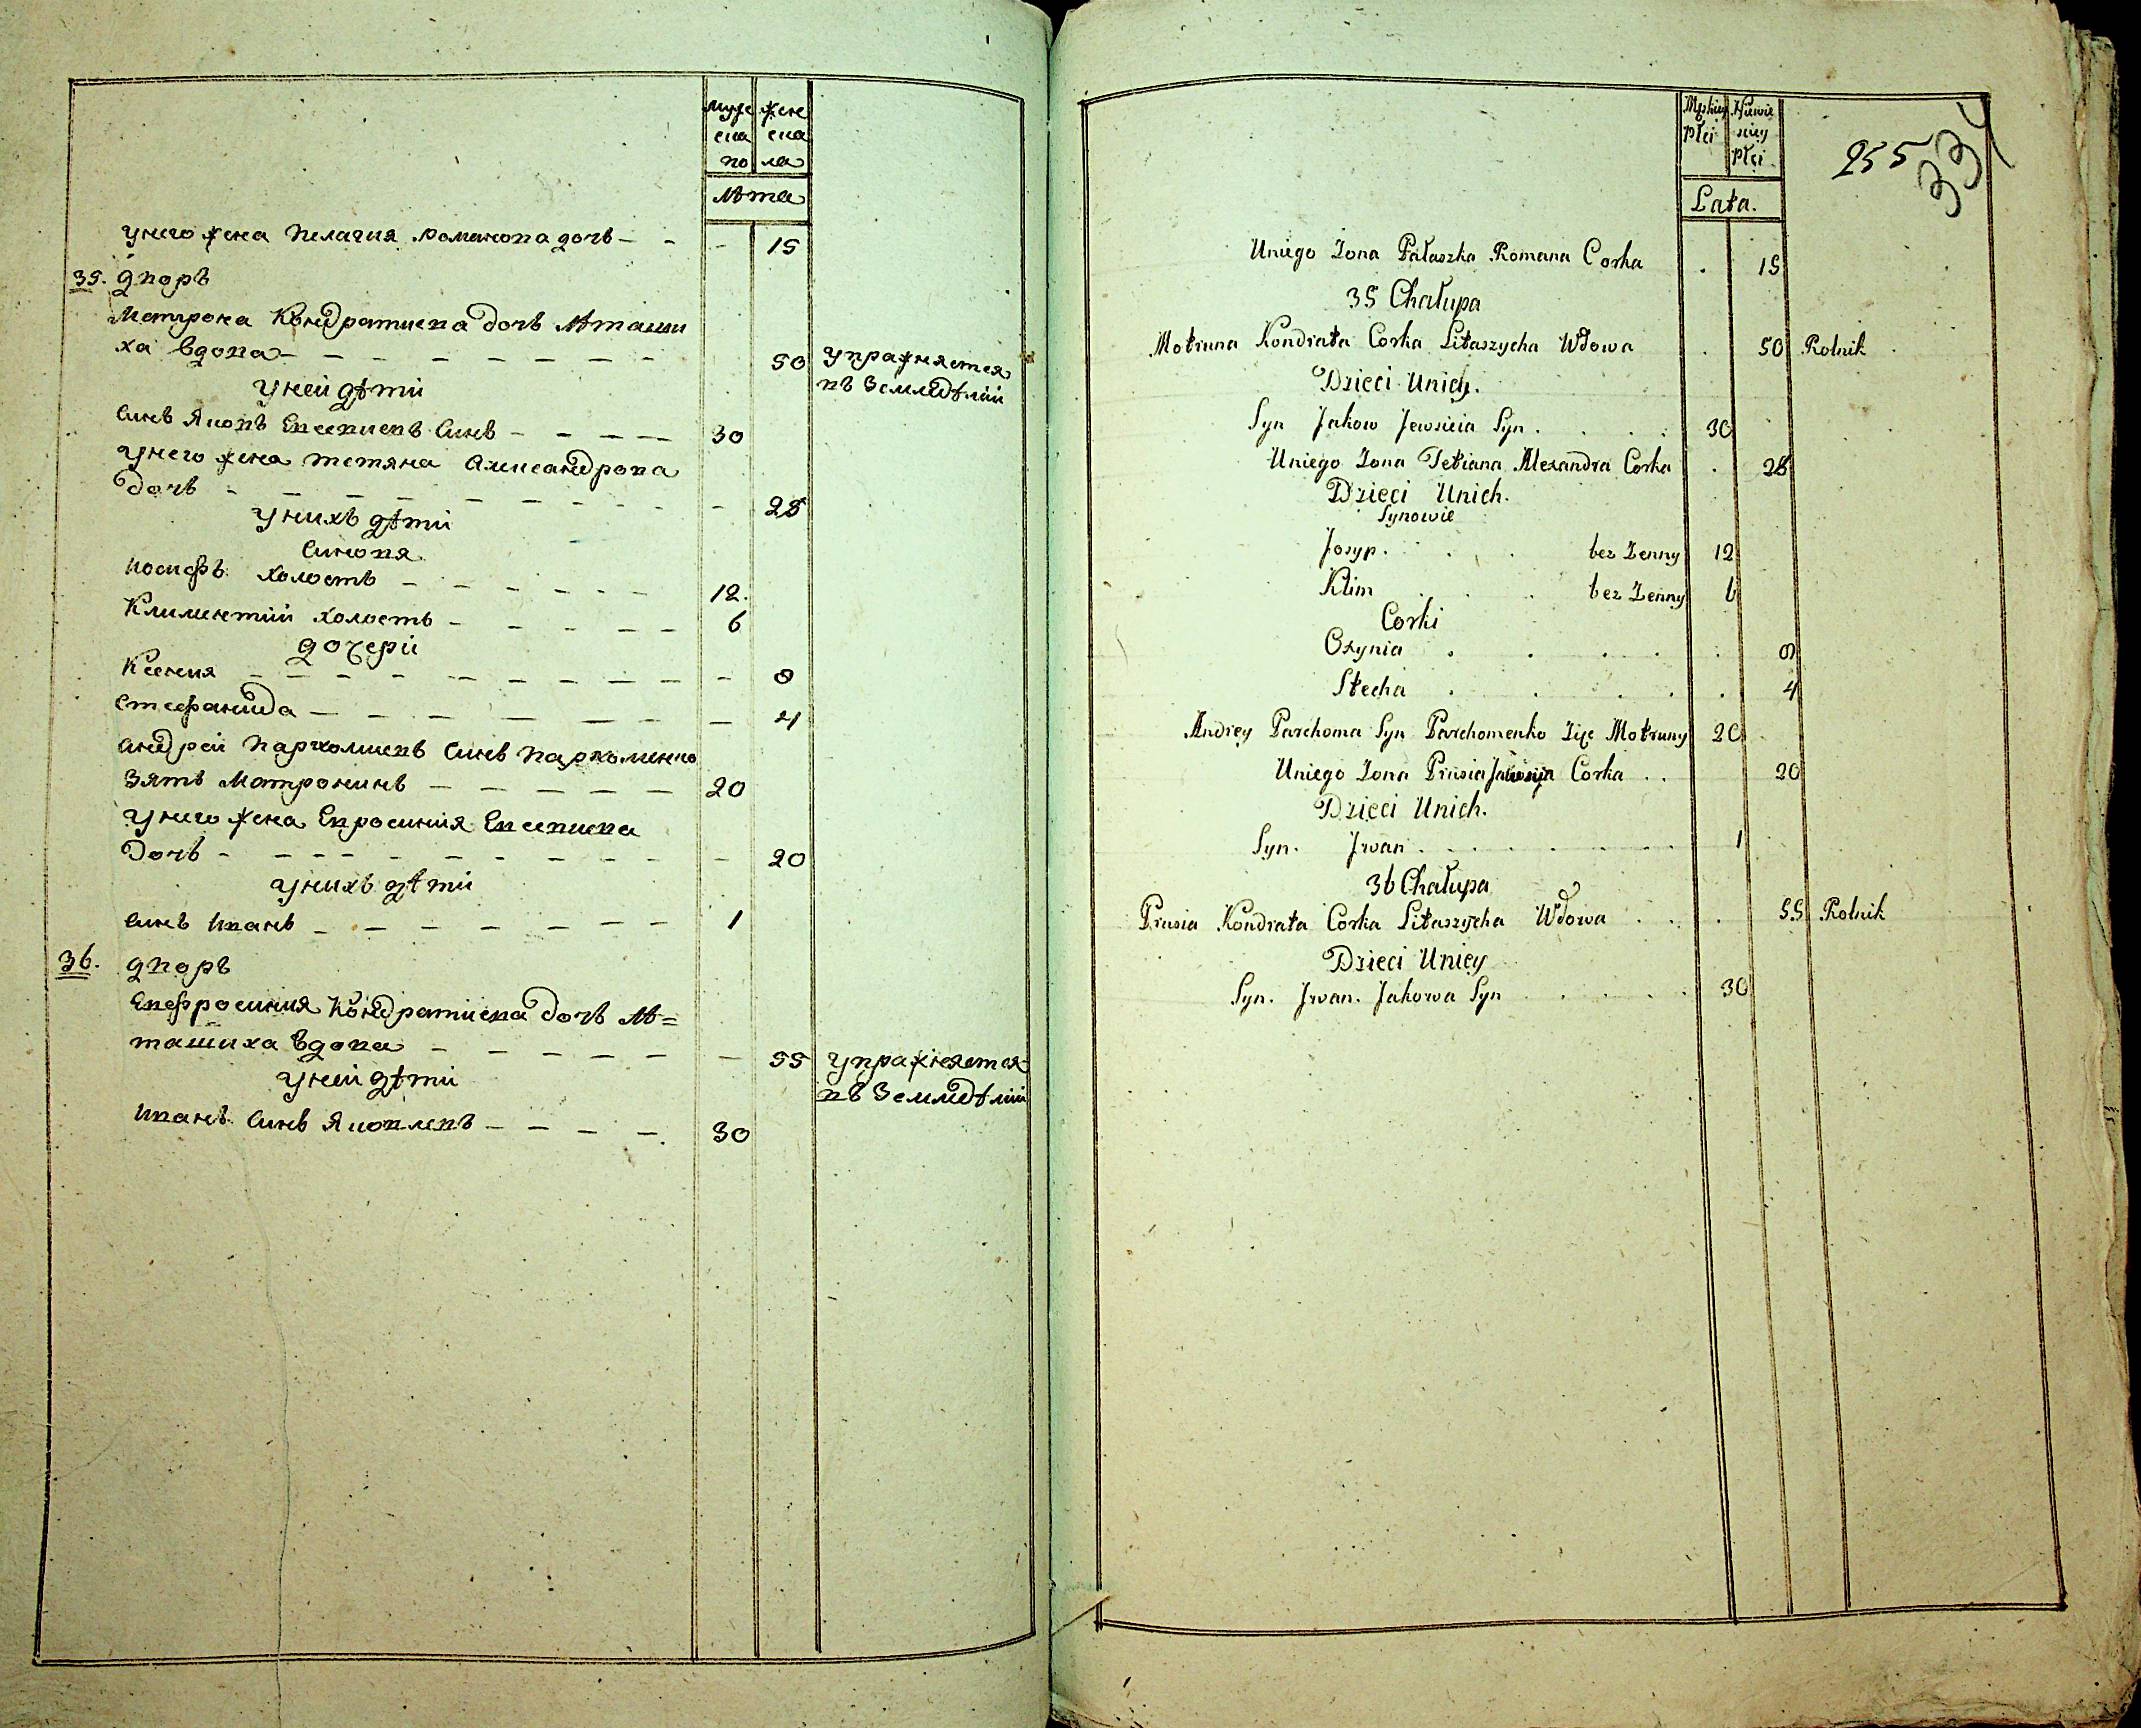 муже жене
ска ска
по ла
лѣта
унего жена Пелагия Романова дочь - - - 15
35. дворъ
Матрона Кондратиева дочь Лѣташи
ха вдова - - - - - - - - 50 упражняется
въ Земледѣлiи
уней дѣти
Синъ Яковъ Евсевиевъ Синъ - - - - 30
унего жена Тетяна Александрова
дочь - - - - - - - - - 28
унихъ дѣти
Синовя
Иосифъ холостъ - - - - - - 12.
Климентiй холостъ - - - - - 6
дочери
Ксения - - - - - - - - - - 8
Стефанида - - - - - - - 4
Андрей Пархомиевъ Синъ Пархоменко
Зять Матронинъ - - - - - 20
унего жена Евросиния Евсевиева
дочь - - - - - - - - - - 20
унихъ дѣти
Синъ Иванъ - - - - - - - 1
36. дворъ
Евфросиния Кондратiева дочь Лѣ=
ташиха вдова - - - - - - 55 упражняется
въ Земледѣлiи
уней дѣти
Иванъ Синъ Яковлевъ - - - - 30
Męzkiey Niewie
płci sciey
płci
Lata.
255
334
Uniego Zona Pałaszka Romana Corka . 15
35 Chałupa
Motruna Kondrata Corka Litaszycha Wdowa . 50 Rolnik
Dzieci Unich.
Syn Jakow Jewsieia Syn . . . . 30
Uniego Zona Tetiana Alexandra Corka . 28
Dzieci Unich.
Synowie
Josyp . . . bez Zenny 12
Klim . . . bez Zenny 6
Corki
Oxynia . . . . . . 8
Stecha . . . . . . 4
Andrey Parchoma Syn Parchomenko Zięc Motruny 20
Uniego Zona Prusia Corka . . 20
Dzieci Unich.
Syn. Jwan . . . . . . . 1
36 Chałupa
Prusia Kondrata Corka Litaszycha Wdowa . . . 55 Rolnik
Dzieci Uniey
Syn. Jwan. Jakowa Syn . . . . . 30